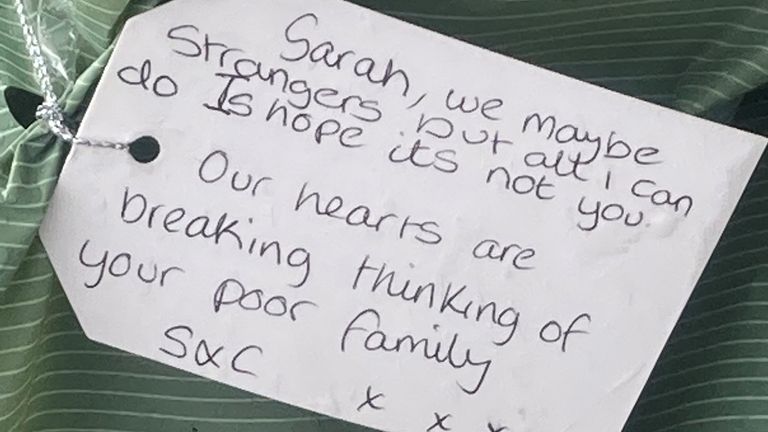 Sarah, we maybe
Strangers but all i can
do Is hope its not you.
Our hearts are
breaking thinking of
your poor family
S&C x x x